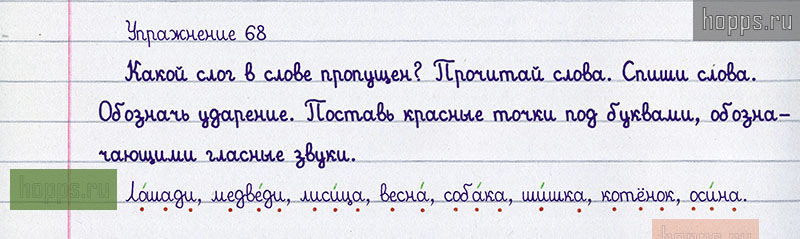 hopps.ru
Упражнение 68
Какой слог в слове пропущен? Прочитай слова. Спиши слова.
Обозначь ударение. Поставь красные точки под буквами, обозна-
чающими гласные звуки.
hopps.ru
Ло́шади, медве́ди, лиси́ца, весна́, соба́ка, ши́шка, котёнок, оси́на.
hopps.ru